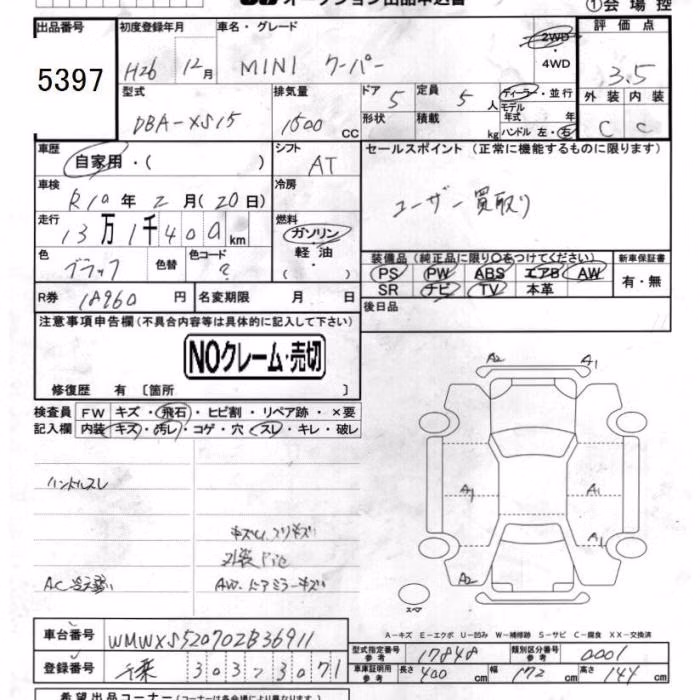 オークション出品申込書
①会場控
出品番号
5397
初度登録年月
H26 12月
車名・グレード
MINI クーパー
2WD
・
4WD
評価点
3.5
型式
DBA-XS15
排気量
1500 cc
ドア 5
形状
定員 5 人
積載 kg
ディーラー・並行
モデル
年式 年
ハンドル 左・右
外装 内装
C C
車歴
自家用・( )
シフト
AT
セールスポイント (正常に機能するものに限ります)
ユーザー買取り
車検
R10年 2月(20日)
冷房
走行
13万1千400km
燃料
ガソリン
軽油
( )
色
ブラック
色替
色コード
?
装備品 (純正品に限り〇をつけてください)
PS PW ABS エアB AW
SR ナビ TV 本革
新車保証書
有・無
R券 18960円
名変期限 月 日
後日品
注意事項申告欄 (不具合内容等は具体的に記入して下さい)
NOクレーム・売切
修復歴 有 〔箇所 〕
検査員
記入欄
FW キズ・飛石・ヒビ割・リペア跡・×要
内装 キズ・汚レ・コゲ・穴・スレ・キレ・破レ
ハンドルスレ
AW、ドアミラーキズ
A2 A1
A1 A1
A1
A2
スペア
A-キズ E-エクボ U-凹み W-補修跡 S-サビ C-腐食 XX-交換済
車台番号 WMWXS520702B36911
登録番号 千葉 303 フ 3071
型式指定番号
参考
17848
類別区分番号
参考
0001
車庫証明用
参考
長さ 400 cm 幅 172 cm 高さ 144 cm
希望出品コーナー (コーナーは各会場により異なります。)